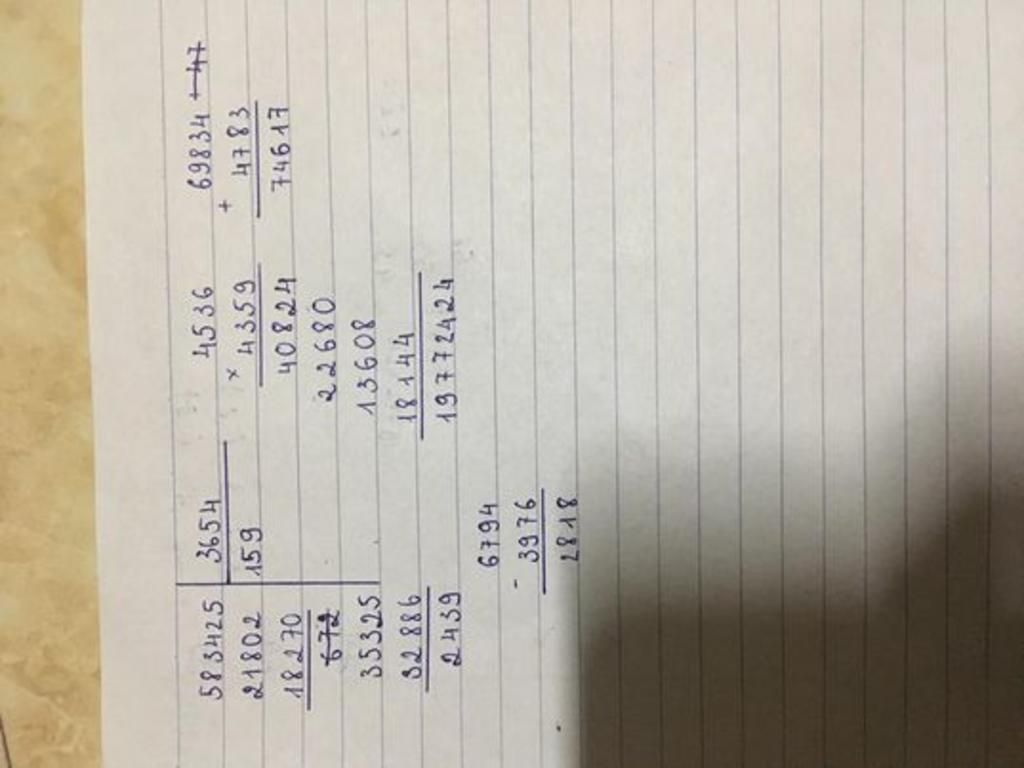 583425 3654
21802 159
18270
672
35325
32886
2439
4536
× 4359
40824
22680
13608
18144
19772424
69834 + 47
+ 4783
74617
6794
- 3976
2818